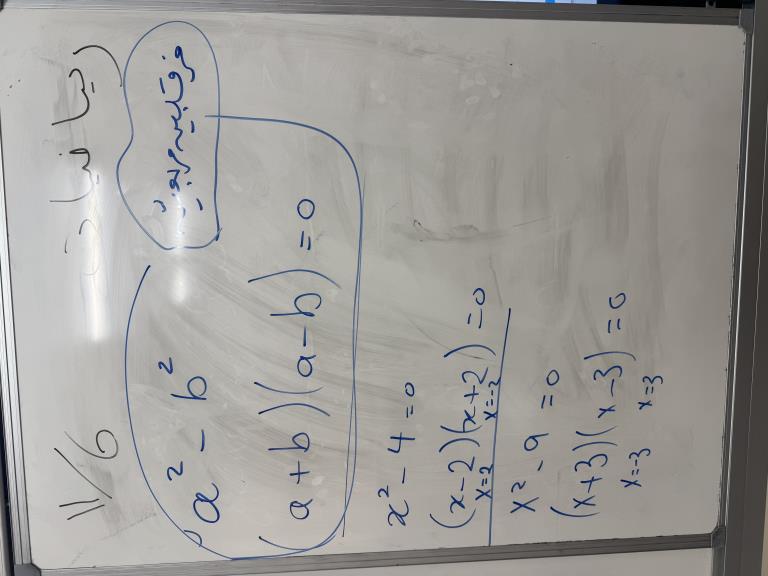 11/6 رياضيات
فرق بين مربعين
a² - b²
(a+b)(a-b)=0
x²-4=0
(x-2)(x+2)=0
x=2 x=-2
x²-9=0
(x+3)(x-3)=0
x=-3 x=3